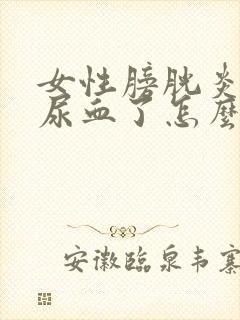 女性膀胱炎
尿血了怎麼
安徽臨泉韦寨